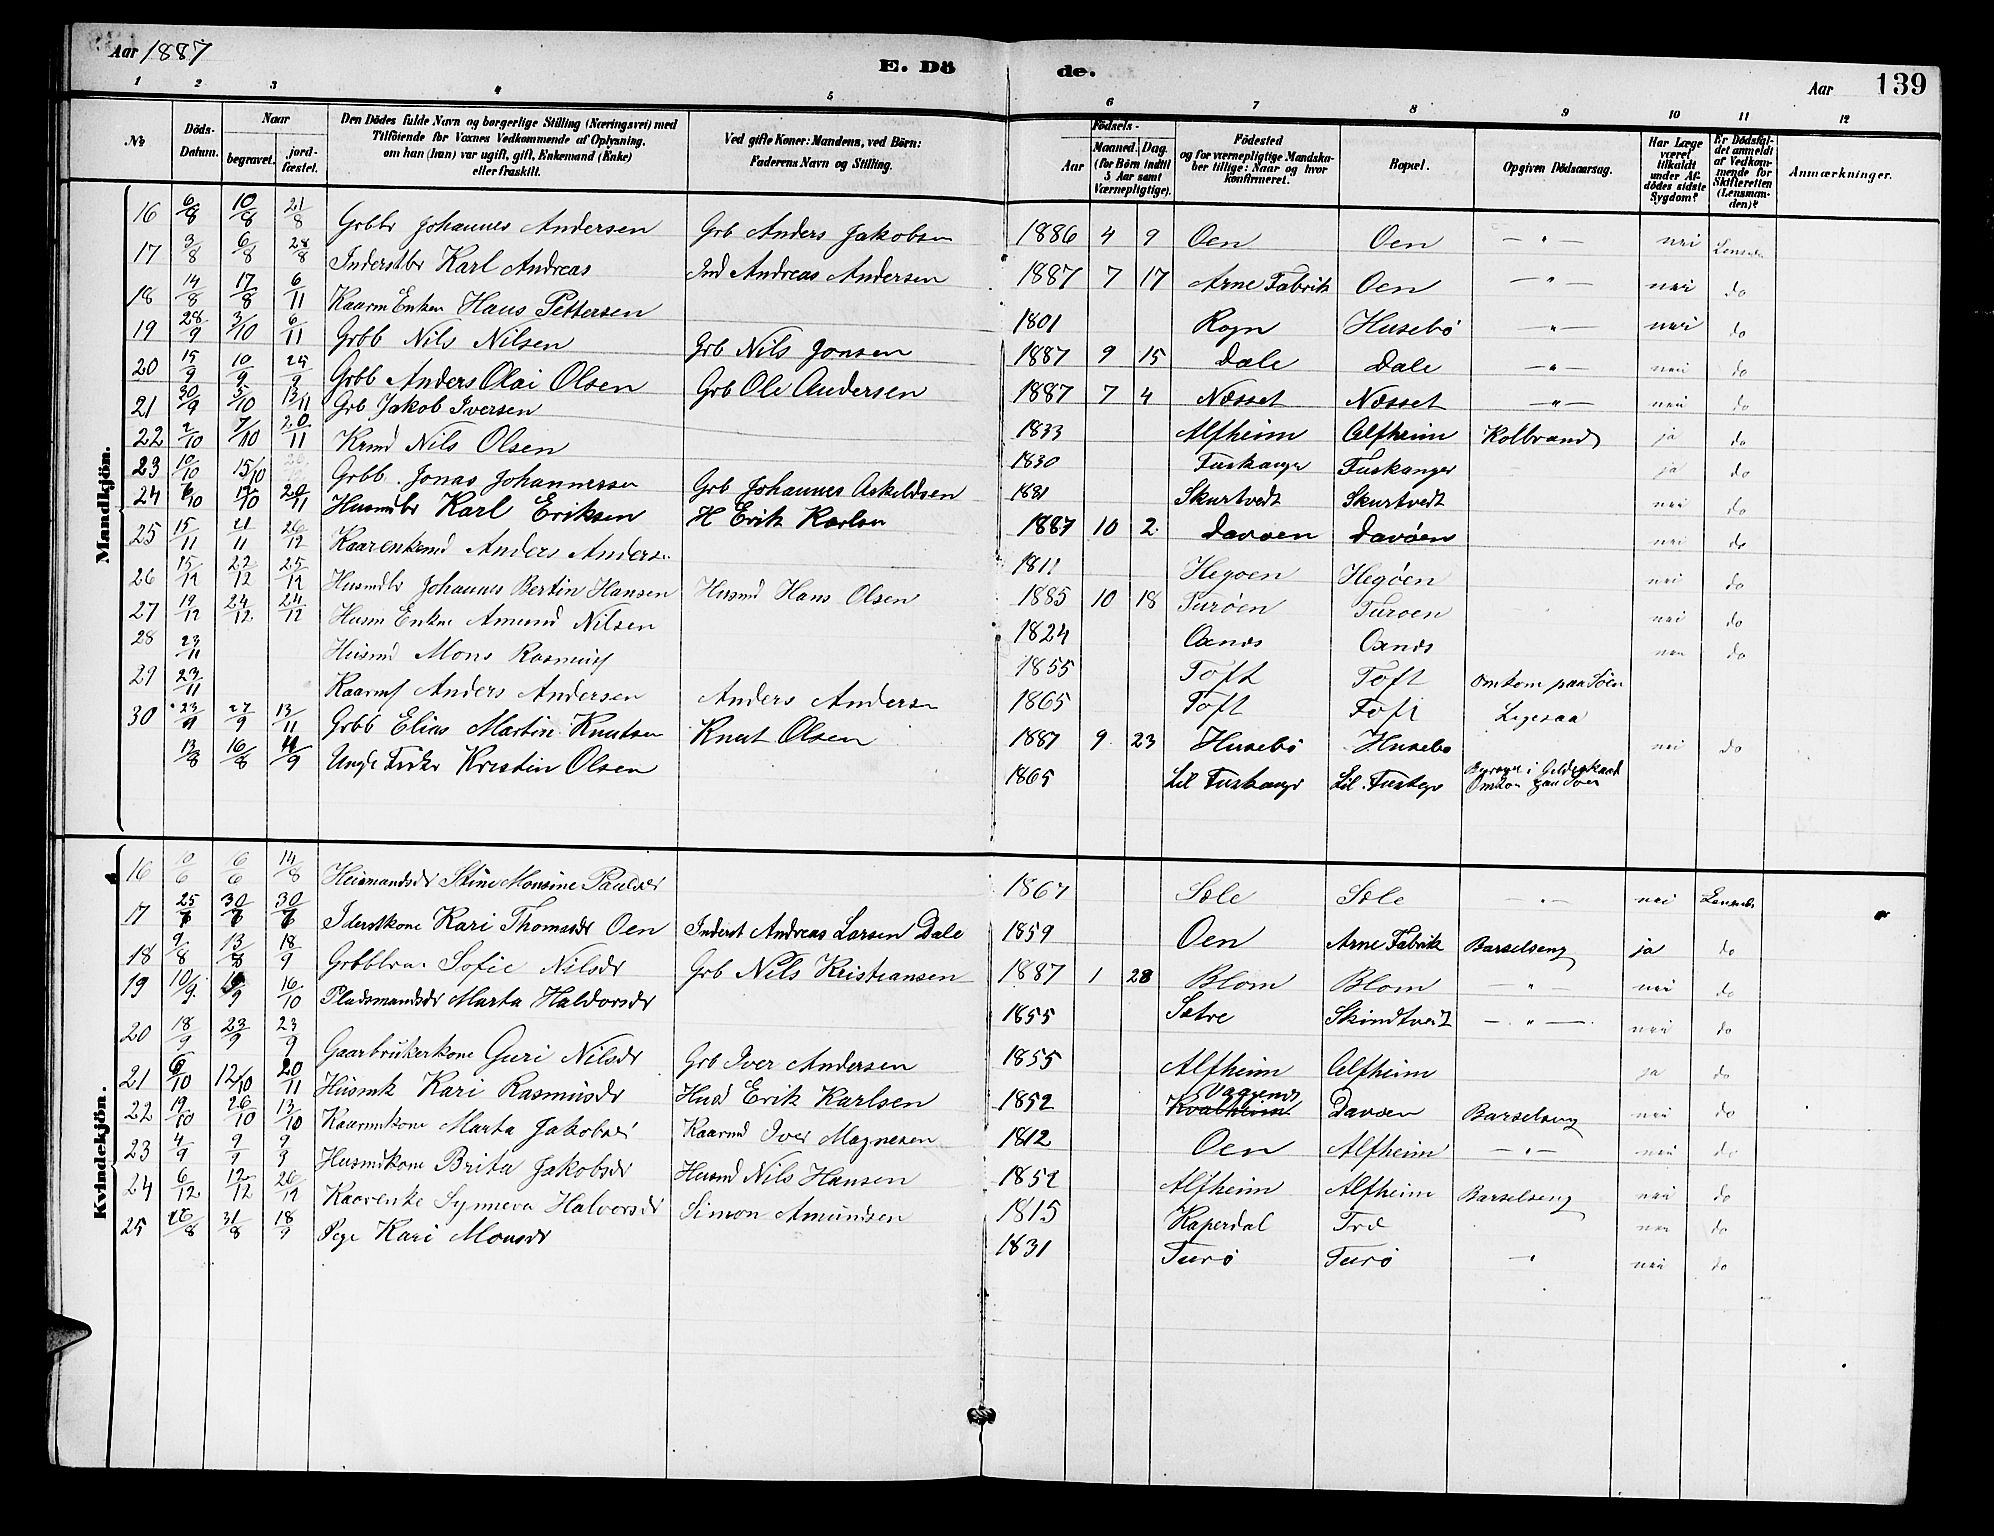 Aar 1887
E. Dö de.
Aar 139
1 2 3 4 5 6 7 8 9 10 11 12
No
Döds-Datum.
Naar
begravet.
jord-fæstet.
Den Dödes fulde Navn og borgerlige Stilling (Næringsvei) med Tilföiende for Voxnes Vedkommende af Oplysning, om han (hun) var ugift, gift, Enkemand (Enke) eller fraskilt.
Ved gifte Koner: Mandens, ved Börn: Faderens Navn og Stilling.
Födsels-
Aar
Maaned. Dag.
(for Börn indtil 5 Aar samt Værnepligtige).
Födested og for værnepligtige Mandska-ber tillige: Naar og hvor konfirmeret.
Bopæl.
Opgiven Dödsaarsag.
Har Læge været tilkaldt under Af-dödes sidste Sygdom?
Er Dödsfal-det anmeldt af Vedkom-mende for Skifteretten (Lensman-den)?
Anmærkninger.
Mandkjön.
16 6/8 10/8 21/8 Grbbr Johannes Andersen Grb Anders Jakobsen 1886 4 9 Oen Oen — " — nei
17 3/8 6/8 28/8 Inderstbr Karl Andreas Ind Andreas Andersen 1887 7 17 Arne Fabrik Oen — " — nei do
18 14/8 17/8 6/11 Kaarm Enkem Hans Pettersen 1801 Rogn Husebö — " — nei do
19 28/9 3/10 6/11 Grbb Nils Nilsen Grb Nils Jonsen 1887 9 15 Dale Dale — " — nei do
20 15/9 10/9 25/9 Grbb Anders Olai Olsen Grb Ole Andersen 1887 7 4 Næsset Næsset — " — nei do
21 30/9 5/10 13/11 Grb Jakob Iversen 1833 Alfheim Alfheim Kolbrand ja do
22 2/10 7/10 20/11 Krmd Nils Olsen 1830 Fuskanger Fuskanger ja do
23 10/10 15/10 Grbb. Jonas Johannessen Grb Johannes Askeldsen 1881 Skurtvedt Skurtvedt nei do
24 6/10 12/10 20/11 Husmbr Karl Eriksen H Erik Karlsen 1887 10 2 Davøen Davøen nei do
25 15/11 21/11 26/12 Kaarenkemd Anders Anders. 1811 Hegøen Hegøen nei do
26 15/12 22/12 25/12 Husmdbr Johannes Bertin Hansen Husmd Hans Olsen 1885 10 18 Turöen Turoen nei do
27 19/12 24/12 24/12 Husm Enkm Amund Nilsen 1824 Oxnes Oxnes nei do
28 23/11 Husmd Mons Rasmus 1855 Toft Toft Omkom paa Söen
29 23/11 Kaarms Anders Andersen Anders Andersen 1865 Toft Toft Ligesaa
30 23/9 27/9 13/11 Grbb Elias Martin Knutsen Knut Olsen 1887 9 23 Husebö Husebö nei do
13/8 16/8 4/9 Ungk Kristen Olsen 1865 Lil Fuskanger Lil. Omkom paa Söen
Kvindekjön.
16 6/6 14/8 Stine Monsine 1867 Sæle Sæle — " — nei
17 25/7 30/7 30/7 Iderstkone Kari Thomasdr Oen Inderst Andreas Larsen Dale 1859 Oen Arne Fabrik Barselseng ja do
18 9/8 13/8 18/9 Sofie Nilsdr Grb Nils Kristiansen 1887 1 28 Blom Blom — " — nei do
19 10/9 16/10 Pladsmandsdr Marta Haldorsdr 1855 Sætre Skindtveit — " — nei do
20 18/9 23/9 23/9 Gaarbrukerkone Guri Nilsdr Grb Iver Andersen 1855 Alfheim Alfheim ja do
21 6/10 12/10 20/11 Husmk Kari Rasmusdr Husd Erik Karlsen 1852 Kvalheim Davøen Barselseng nei do
22 19/10 26/10 13/10 Kaarmkone Marta Jakobsdr Kaarmd Iver Magnesen 1812 Oen Alfheim — " — nei do
23 4/9 9/9 9/9 Husmkone Brita Jakobsdr Husmd Nils Hansen 1852 Alfheim Alfheim Barselseng nei do
24 6/12 12/12 26/12 Kaarenke Synneva Halvorsdr Simon Amundsen 1815 Kaperdal nei do
25 26/8 31/8 18/9 Pige Kari Monsdr 1831 Turö Turö " nei do